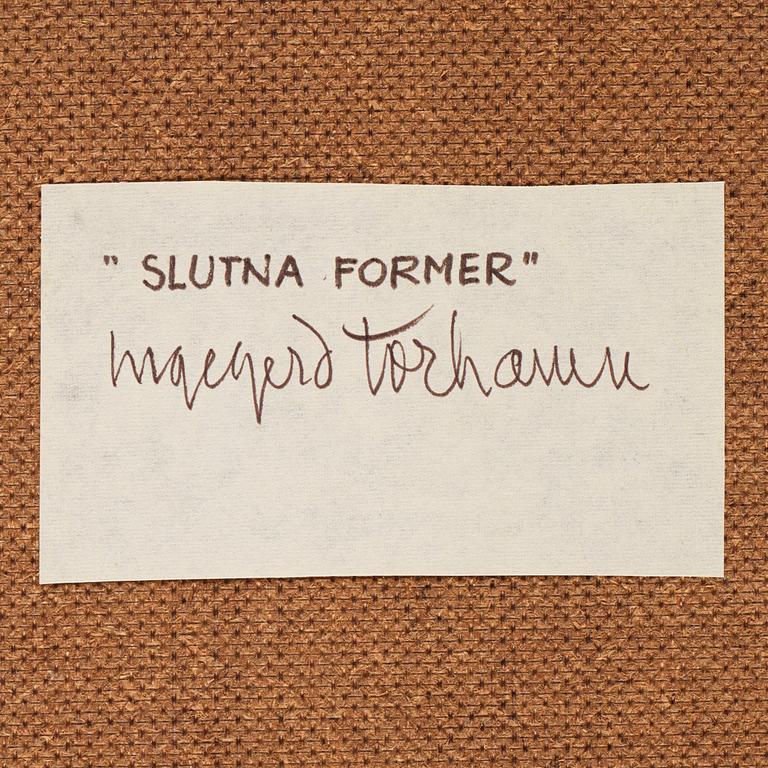 " SLUTNA FORMER"
Ingegerd Torhamn